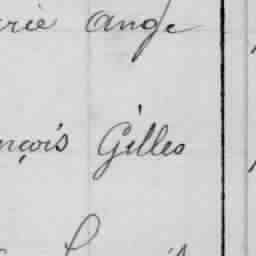 rie Ange
nçois Gilles